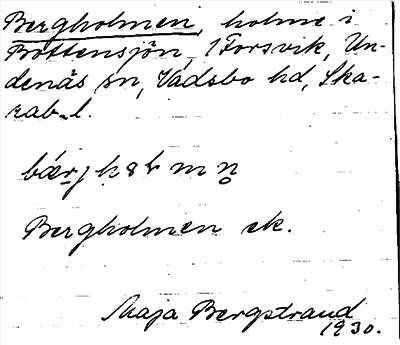 Bergholmen, holme i
Bottensjön, Forsvik, Un-
denäs sn, Vadsbo hd, Ska-
rab. l.
Bergholmen ek.
Maja Bergstrand
1930.